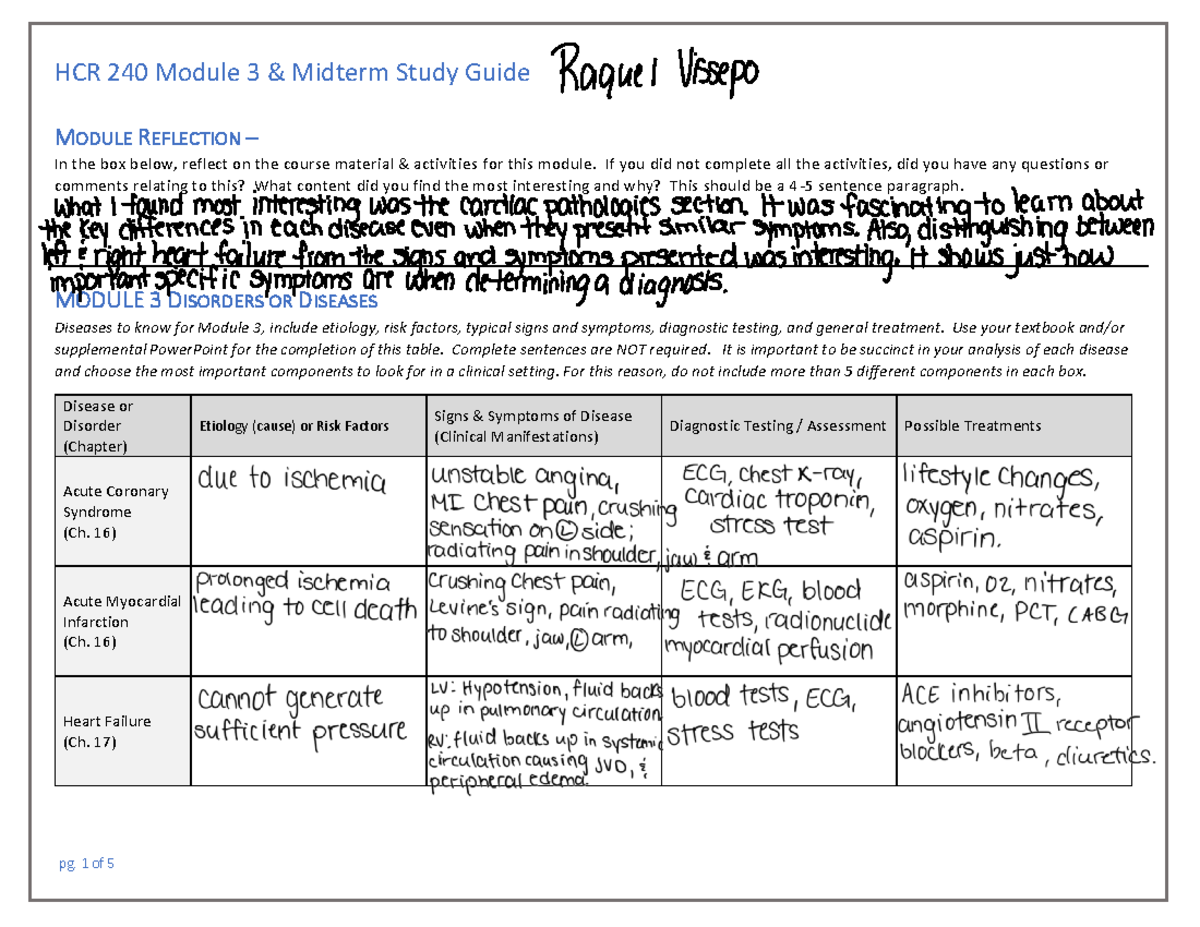 HCR 240 Module 3 & Midterm Study Guide Raquel Vissepo
MODULE REFLECTION –
In the box below, reflect on the course material & activities for this module. If you did not complete all the activities, did you have any questions or
comments relating to this? What content did you find the most interesting and why? This should be a 4-5 sentence paragraph.
What I found most interesting was the cardiac pathologies section. It was fascinating to learn about
the key differences in each disease even when they present similar symptoms. Also, distinguishing between
left & right heart failure from the signs and symptoms presented was interesting. It shows just how
important specific symptoms are when determining a diagnosis.
MODULE 3 DISORDERS OR DISEASES
Diseases to know for Module 3, include etiology, risk factors, typical signs and symptoms, diagnostic testing, and general treatment. Use your textbook and/or
supplemental PowerPoint for the completion of this table. Complete sentences are NOT required. It is important to be succinct in your analysis of each disease
and choose the most important components to look for in a clinical setting. For this reason, do not include more than 5 different components in each box.
Disease or
Disorder
(Chapter)
Etiology (cause) or Risk Factors
Signs & Symptoms of Disease
(Clinical Manifestations)
Diagnostic Testing / Assessment
Possible Treatments
Acute Coronary
Syndrome
(Ch. 16)
due to ischemia
unstable angina,
MI chest pain, crushing
sensation on Ⓛ side;
radiating pain in shoulder, jaw & arm
ECG, chest x-ray,
cardiac troponin,
stress test
lifestyle changes,
oxygen, nitrates,
aspirin.
Acute Myocardial
Infarction
(Ch. 16)
prolonged ischemia
leading to cell death
Crushing chest pain,
Levine's sign, pain radiating
to shoulder, jaw, Ⓛ arm,
ECG, EKG, blood
tests, radionuclide
myocardial perfusion
aspirin, O2, nitrates,
morphine, PCT, CABG
Heart Failure
(Ch. 17)
cannot generate
sufficient pressure
LV: Hypotension, fluid backs
up in pulmonary circulation
RV: fluid backs up in systemic
circulation causing JVD, &
peripheral edema.
blood tests, ECG,
stress tests
ACE inhibitors,
angiotensin II receptor
blockers, beta, diuretics.
pg. 1 of 5